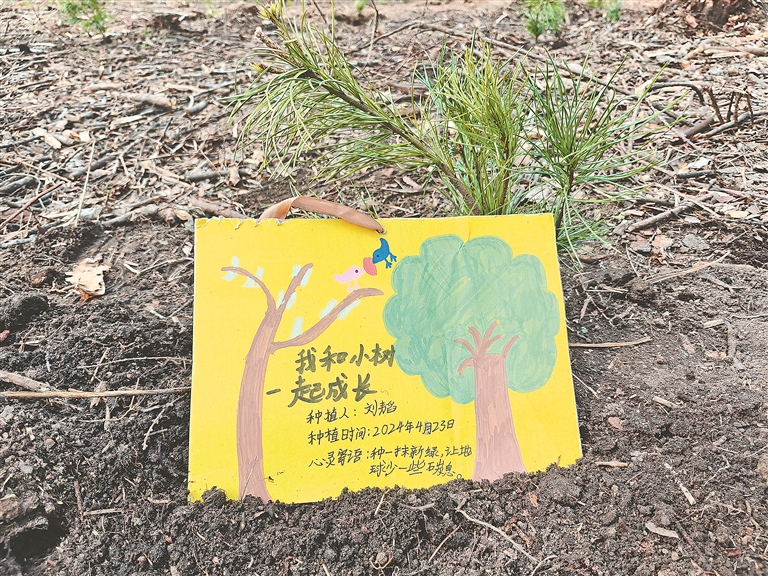 我和小树
一起成长
种植人：刘嘉韬
种植时间：2024年4月23日
心灵寄语：种一抹新绿，让地
球少一些碳息。